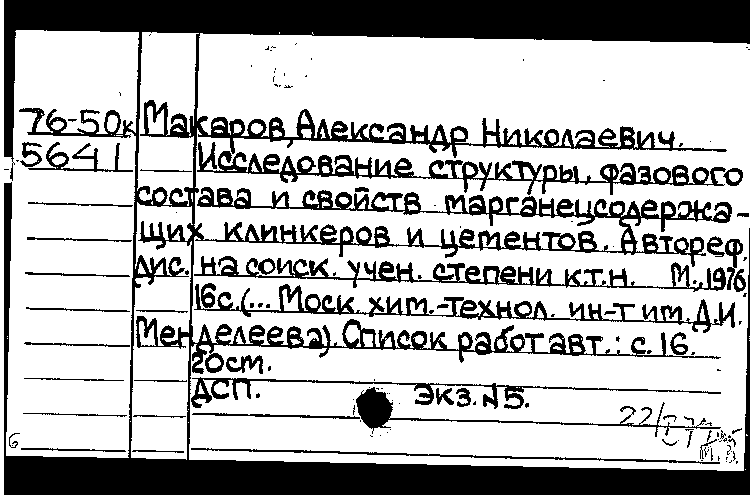 76-50к Макаров, Александр Николаевич.
5641 Исследование структуры, фазового
состава и свойств марганецсодержа-
щих клинкеров и цементов. Автореф.
дис. на соиск. учен. степени к.т.н. М., 1976
16с. (... Моск. хим.-технол. ин-т им. Д.И.
Менделеева). Список работ авт.: с. 16.
20см.
ДСП. Экз. №5.
22/
6